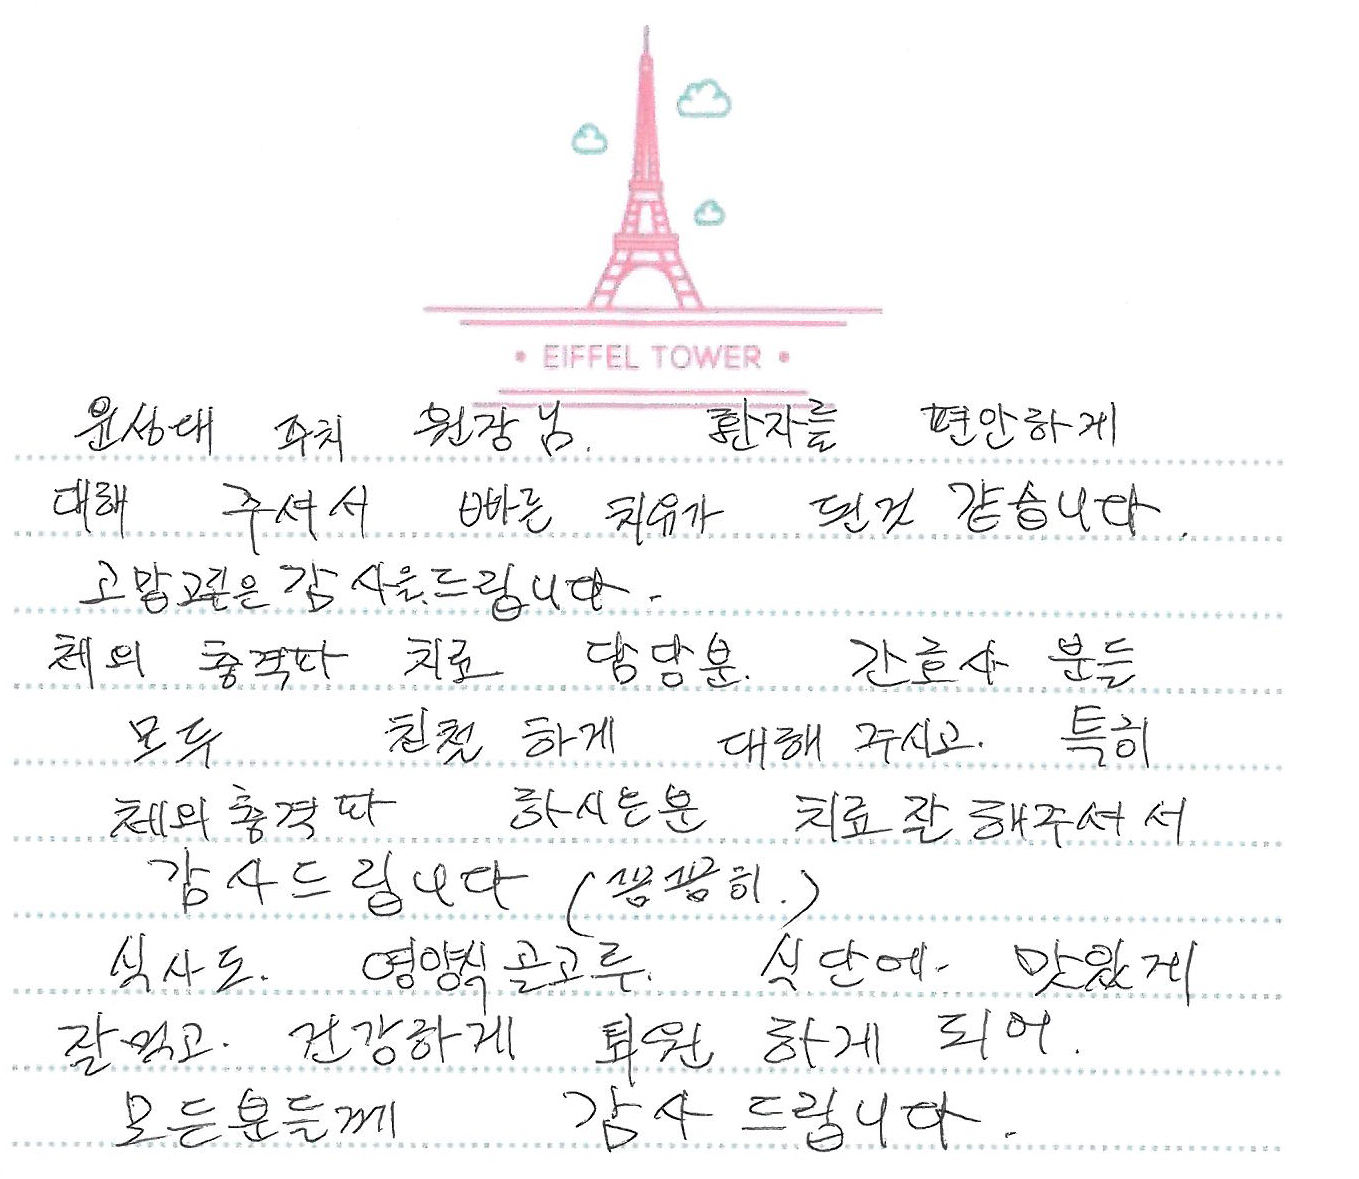 EIFFEL TOWER
윤상대 주치 원장님. 환자를 편안하게
대해 주셔서 빠른 치유가 된것 같습니다.
고맙고 깊은 감사을 드립니다.
체외 충격파 치료 담당분. 간호사 분들
모두 친철 하게 대해 주시고. 특히
체외충격파 하시는분 치료 잘 해주셔서
감사드립니다 (꼼꼼히.)
식사도. 영양식 골고루. 식단에. 맛있게
잘먹고. 건강하게 퇴원 하게 되어.
모든분들께 감사 드립니다.